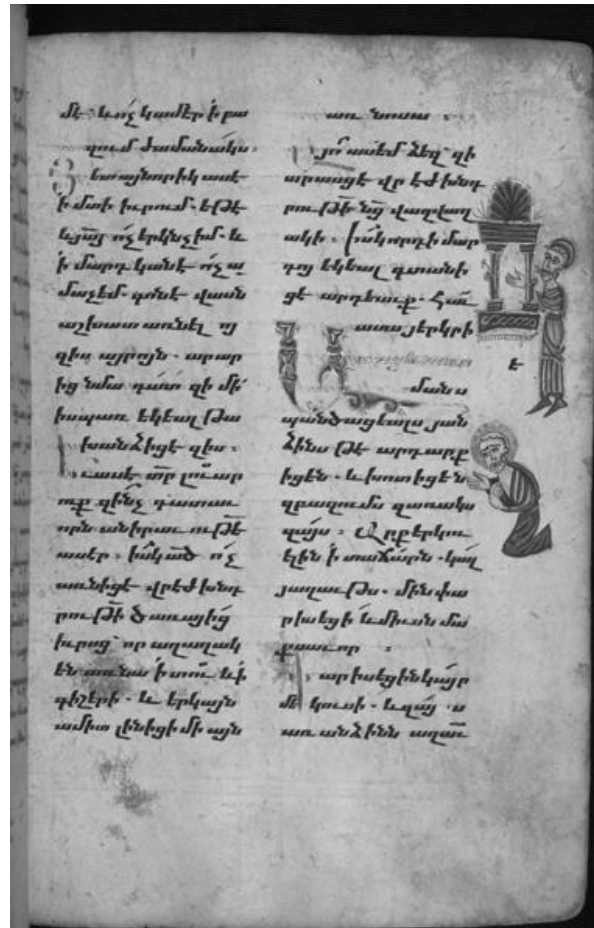 մէ. և ոչ կամէր ի բա
զում ժամանակս.
Յետ այնորիկ ասէ
ի մտի իւրում. եթէ
և յայ ոչ երկնչիմ. և
ի մարդկանէ ոչ ա
մաչեմ. գոնէ վասն
աշխատ առնելոյ
զիս այրոյն. արար
ից նմա դատ զի մի՛
իսպառ եկեալ թա
խանձիցէ զիս:
Եւ ասէ տր լուար
ուք զինչ դատաւ
որն անիրաւութե
ասէր. իսկ ած ոչ
առնիցէ վրեժխնդ
րութի ծառայից
իւրոց՝ որ աղաղակ
են առ նա ի տուէ և ի
գիշերի. և երկայն
ամիտ լինիցի միայն
առ նոսա:
յո ասեմ ձեզ՝ զի
արասցէ վրեժխնդ
րութի նց վաղվաղ
ակի. իսկ որդի մար
դոյ եկեալ գտանի
ցէ արդեւք. հաւ
ատս յերկրի
է
մանս
պանծացեալս յան
ձինս թէ արդարք
իցեն. և խոտիցեն
զբազումս զառակս
զայս: Արք երկու
ելին ի տաճարն. կալ
յաղաւթս. մին փա
րիսեցի և միւսն մա
քսաւոր:
արիսեցին կայր
մեկուսի. և զայս
առանձինն աղաւ